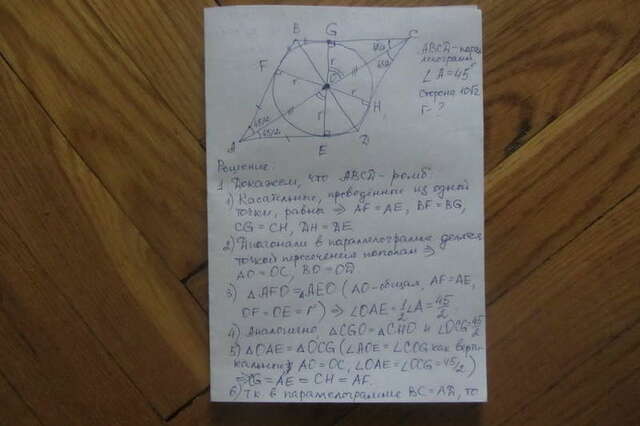 B G C
F
H
A E D
45/2
45/2
r r r r
ABCD - пара
лелограмм
∠A = 45°
Сторона 10√2
r - ?
Решение:
1. Докажем, что ABCD - ромб.
1) Касательные, проведённые из одной
точки, равны ⇒ AF = AE, BF = BG,
CG = CH, DH = DE.
2) Диагонали в параллелограмме делятся
точкой пересечения пополам ⇒
AO = OC, BO = OD
3) △AFO = △AEO (AO - общая, AF = AE,
OF = OE = r) ⇒ ∠OAE = 1/2 ∠A = 45/2
4) Аналогично △CGO = △CHO и ∠OCG = 45/2
5) △OAE = △OCG (∠AOE = ∠COG как верти-
кальные; AO = OC, ∠OAE = ∠OCG = 45/2)
⇒ CG = AE = CH = AF.
6) Т.к. в параллелограмме BC = AD, то